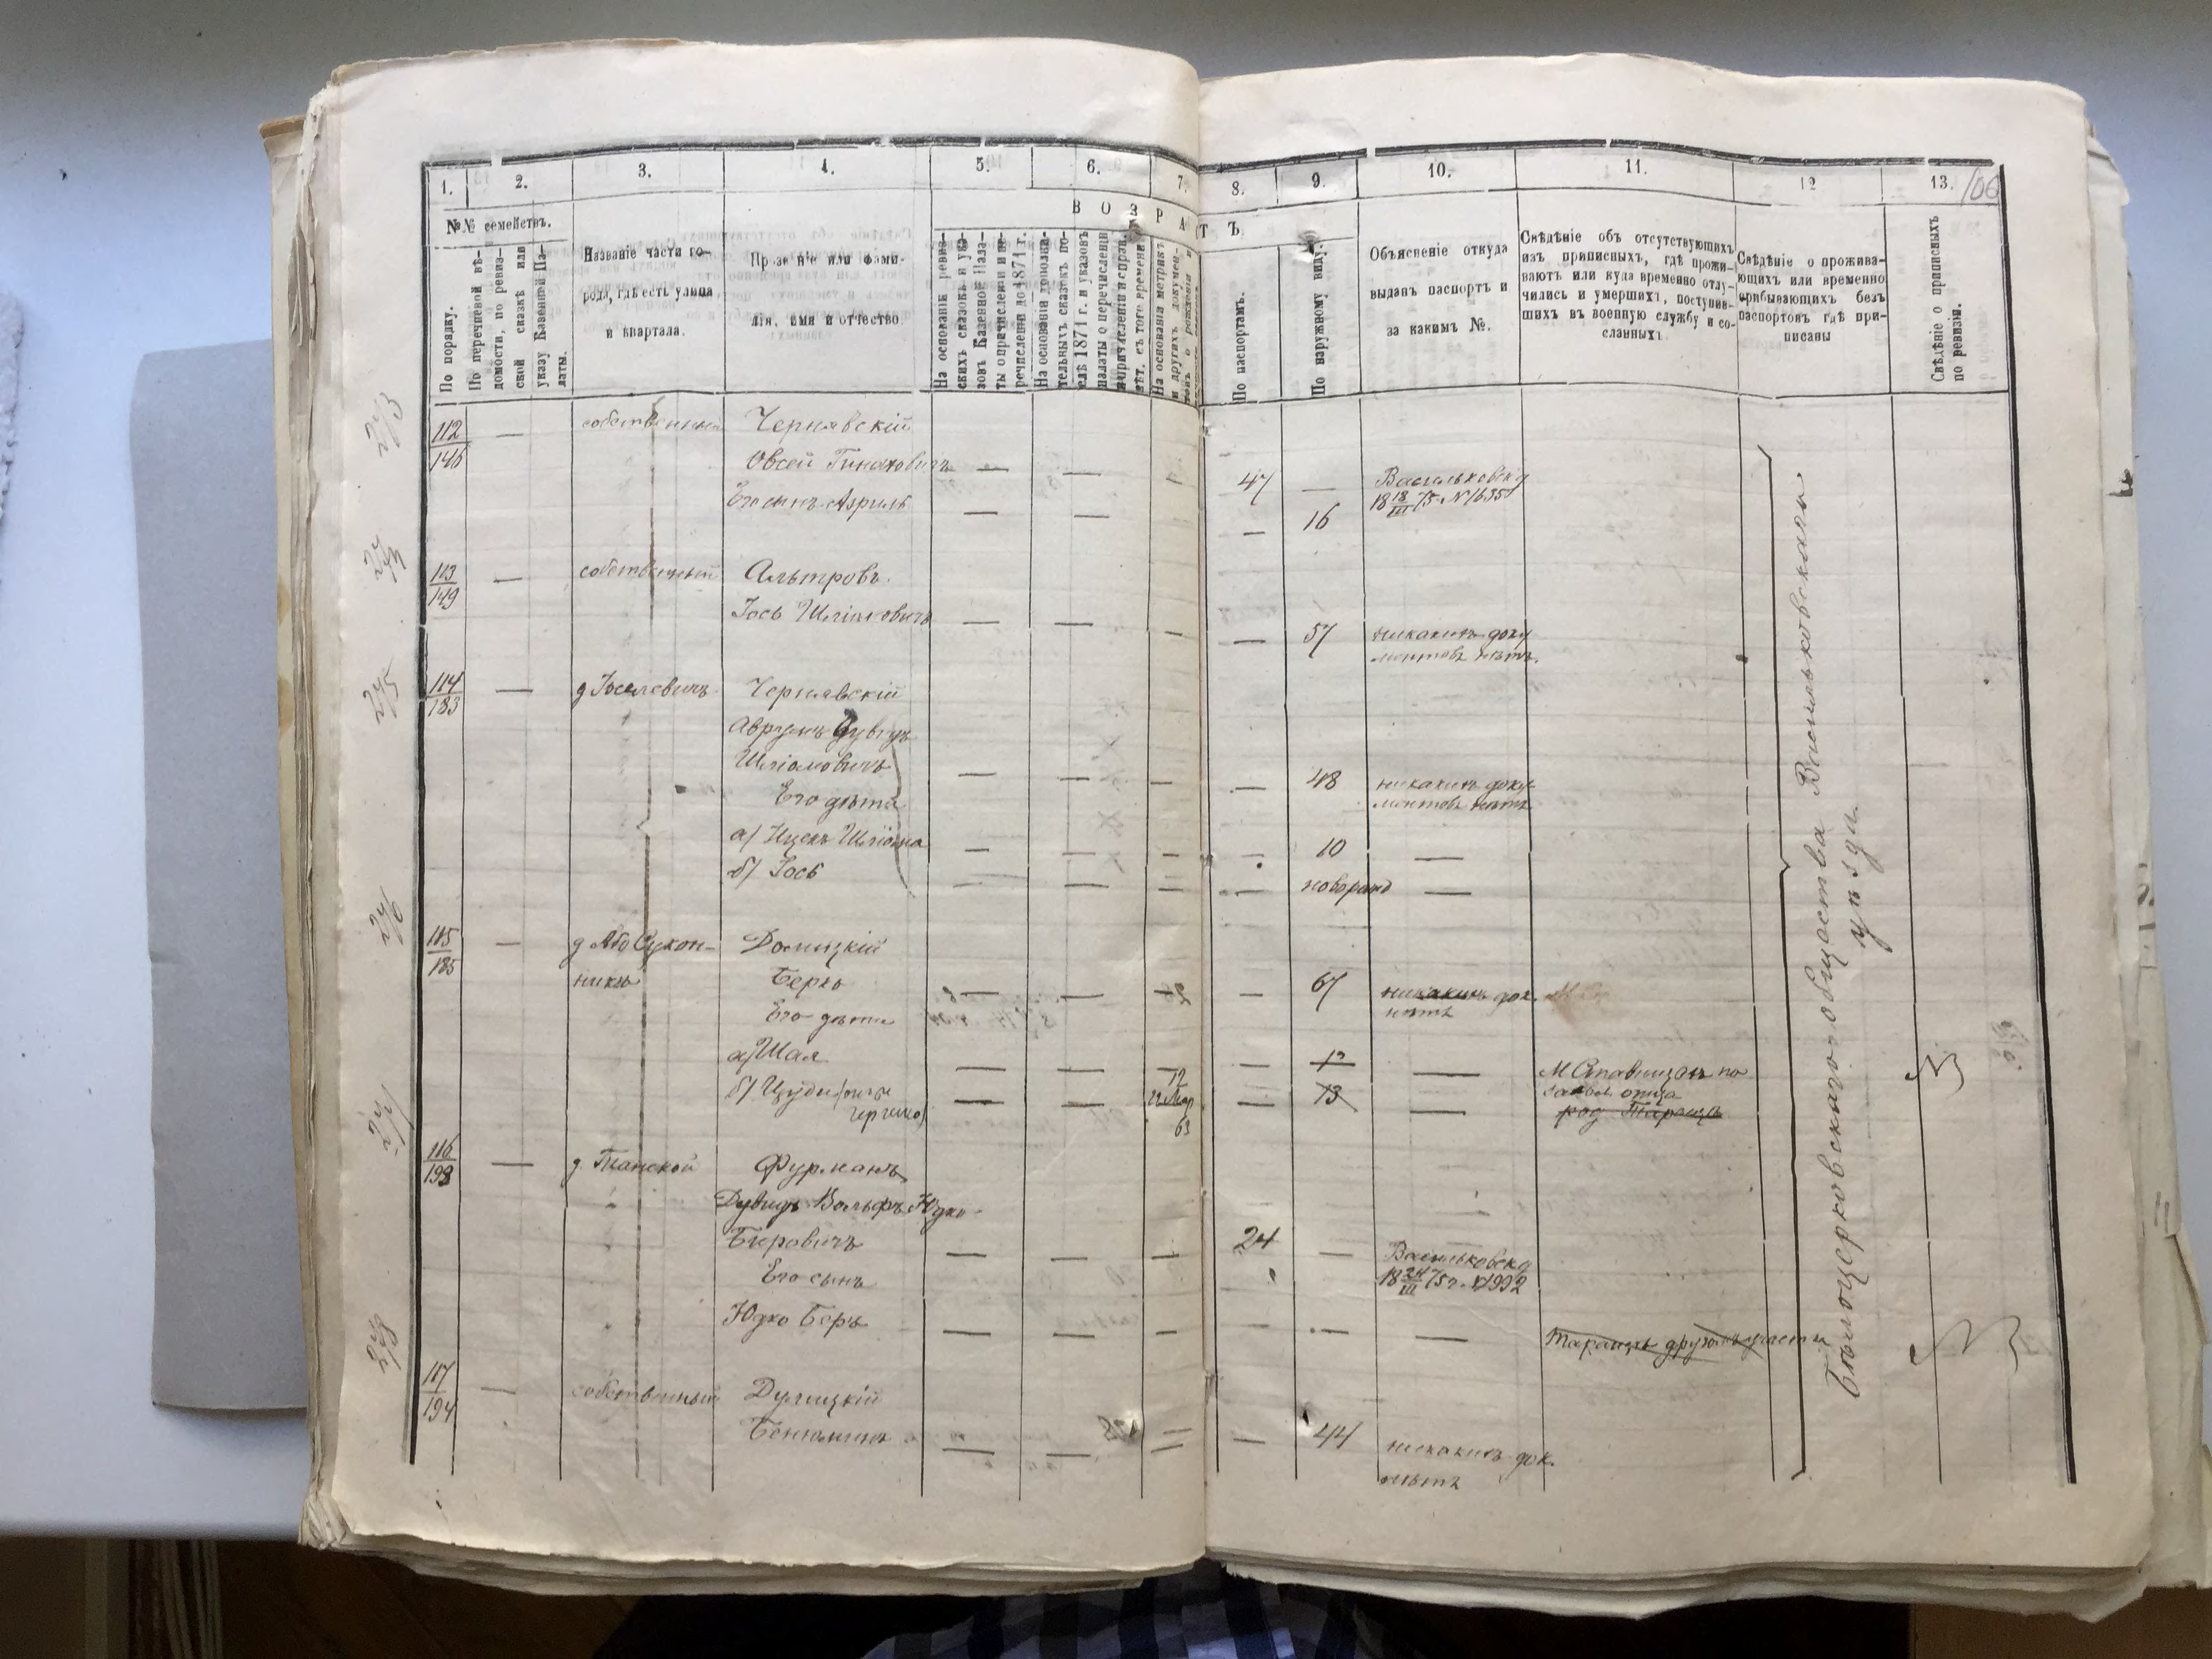 1. 2. 3. 4. 5. 6. 7. 8. 9. 10. 11. 12 13. 106
№№ семействъ.
В О З Р А С Т Ъ
По порядку.
По перечневой вѣ-
домости, по ревиз-
ской сказкѣ или
указу Казенной Па-
латы.
Названіе части го-
рода, гдѣ есть улица
и квартала.
Прозваніе или фами-
лія, имя и отчество
На основаніи ревиз-
скихъ сказокъ и ука-
зовъ Казенной Пала-
ты о причисленіи и пе-
речисленіи до 1871 г.
На основаніи дополни-
тельныхъ сказокъ по-
слѣ 1871 г. и указовъ
палаты о перечисленіи
На основаніи метрикъ
и другихъ докумен-
товъ о рожденіи и
По паспортамъ.
По наружному виду.
Объясненіе откуда
выданъ паспортъ и
за какимъ №.
Свѣдѣніе объ отсутствующихъ
изъ приписныхъ, гдѣ прожи-
ваютъ или куда временно отлу-
чились и умершихъ, поступив-
шихъ въ военную службу и со-
сланныхъ.
Свѣдѣніе о прожива-
ющихъ или временно
прибывающихъ безъ
паспортовъ гдѣ при-
писаны
Свѣдѣніе о приписныхъ
по ревизіи.
112 — собственный Чернявскій
146 Овсей — — 47 — Васильковска
18 18/III 75 № 1635
Его сынъ Азриль — — — 16
113 — собственный Альтровъ.
149 Іось Шліомовичъ — — — — 57 никакихъ доку
ментовъ нѣтъ.
114 — д Іоселевичъ Чернявскій
183 Аврумъ Дувидъ
Шліомовичъ — — — — 48 никакихъ доку
ментовъ нѣтъ
Его дѣти
а) Ицекъ Шліома — — — — 10 —
б) Іось — — — — новорожд —
115 — д Або Сукон- Долицкій
185 ника Берко — — — — 67 никакихъ док.
нѣтъ
Его дѣти
а) Шая — — 12 — —
б) — — 63 — 13 —
М Ставищахъ по
отца
116 — д Фурманъ
193 Дувидъ Вольфъ Юдко
Беровичъ — — — 24 — Васильковска
18 24/III 75 г. № 1992
Его сынъ
Юдко Беръ — — — — —
117 — собственный Дулицкій
194 Бенюминъ — — — — 44 никакихъ док.
нѣтъ
Бѣлоцерковскаго общества Васильковскаго
уѣзда
273
275
276
277
278